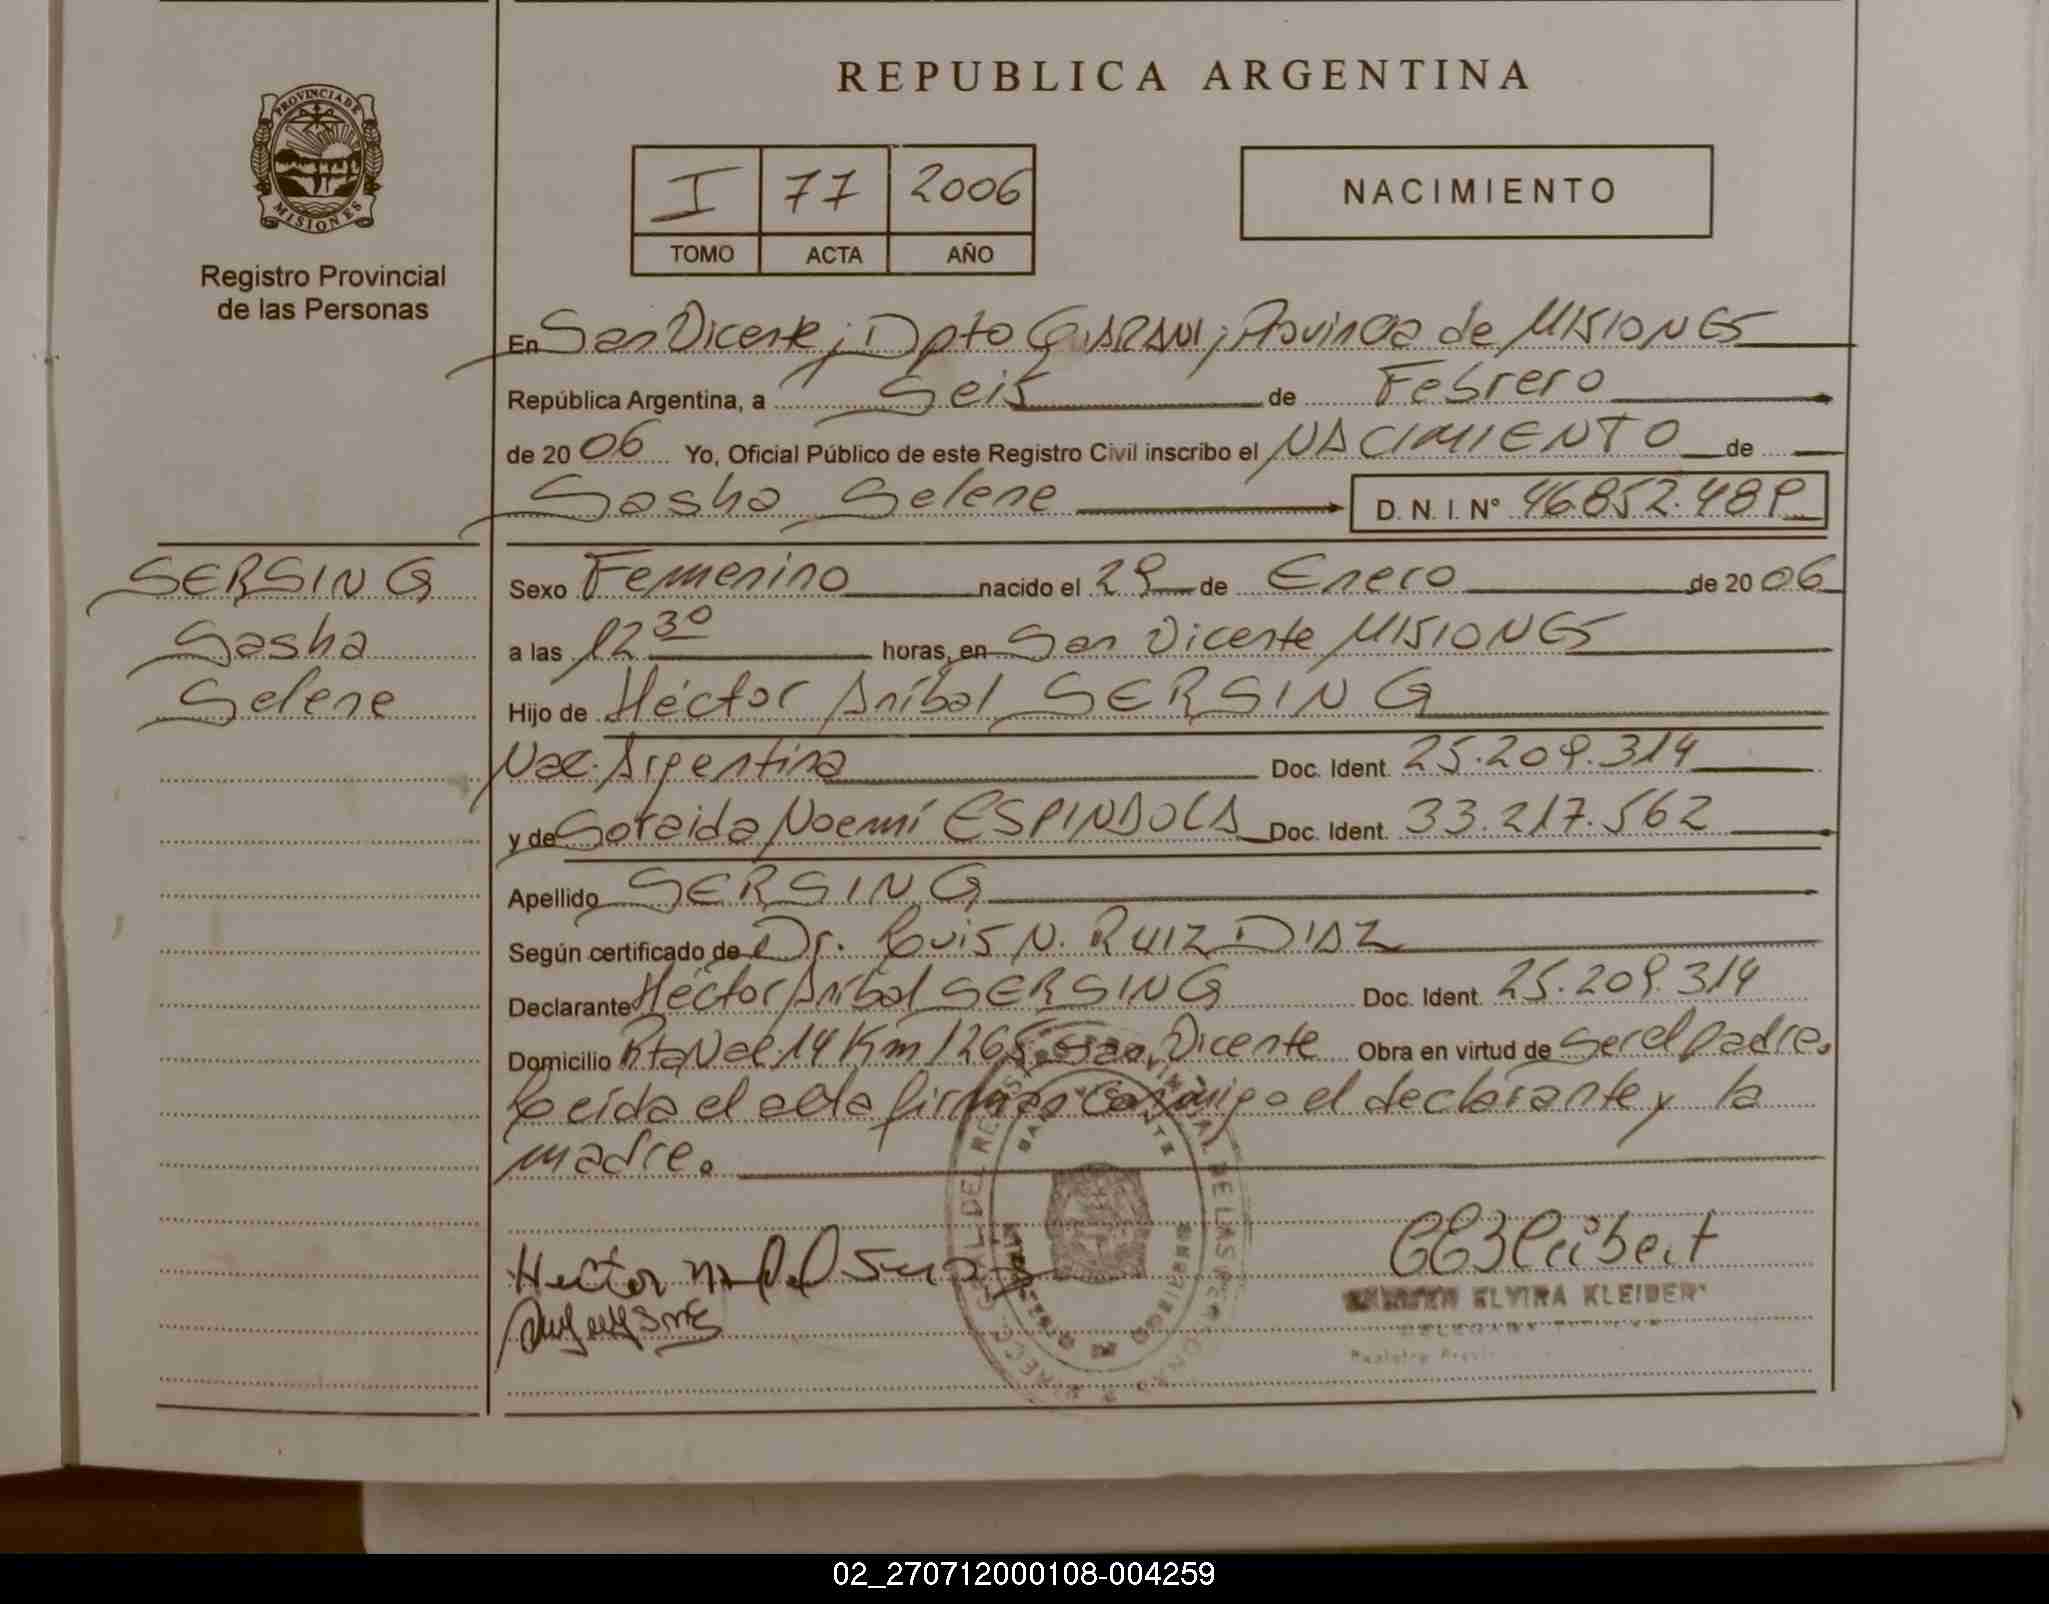 REPUBLICA ARGENTINA
PROVINCIA DE
MISIONES
Registro Provincial
de las Personas
I 77 2006
TOMO ACTA AÑO
NACIMIENTO
En San Vicente; Dpto GUARANI; Provincia de MISIONES
República Argentina, a Seis de Febrero
de 2006 Yo, Oficial Público de este Registro Civil inscribo el NACIMIENTO de
Sasha Selene D. N. I. N° 46.852.489
SERSING
Sasha
Selene
Sexo Femenino nacido el 29 de Enero de 2006
a las 12 30 horas, en San Vicente MISIONES
Hijo de Héctor Aníbal SERSING
Nac. Argentina Doc. Ident. 25.209.314
y de Soraida Noemí ESPINDOLA Doc. Ident. 33.217.562
Apellido SERSING
Según certificado de Dr. Louis N. RUIZ DIAZ
Declarante Héctor Aníbal SERSING Doc. Ident. 25.209.314
Domicilio Rta Nac. 14 Km 1265 San Vicente Obra en virtud de Ser el Padre.
Leída el acta firman conmigo el declarante y la
madre.
Hector
ELVIRA KLEIBER
02_270712000108-004259